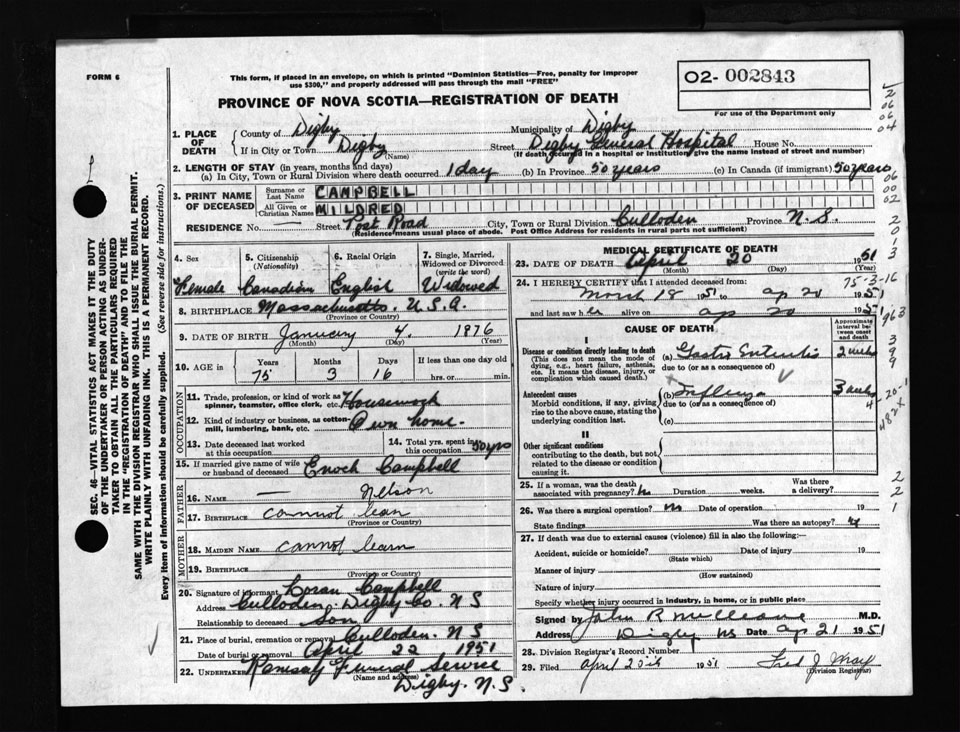 FORM 6
This form, if placed in an envelope, on which is printed "Dominion Statistics—Free, penalty for improper
use $300," and properly addressed will pass through the mail "FREE"
O2- 002843
For use of the Department only
PROVINCE OF NOVA SCOTIA—REGISTRATION OF DEATH
1. PLACE OF DEATH
County of Digby
Municipality of Digby
If in City or Town Digby (Name)
Street Digby General Hospital House No.
(If death occurred in a hospital or institution, give the name instead of street and number)
2. LENGTH OF STAY (in years, months and days)
(a) In City, Town or Rural Division where death occurred 1 day (b) In Province 50 years (c) In Canada (if immigrant) 50 years
3. PRINT NAME OF DECEASED
Surname or Last Name CAMPBELL
All Given or Christian Names MILDRED
RESIDENCE No. — Street Post Road City, Town or Rural Division Culloden Province N.S.
(Residence means usual place of abode. Post Office Address for residents in rural parts not sufficient)
4. Sex
5. Citizenship (Nationality)
6. Racial Origin
7. Single, Married, Widowed or Divorced (write the word)
Female Canadian English Widowed
8. BIRTHPLACE Massachusetts. U.S.A.
(Province or Country)
9. DATE OF BIRTH January 4, 1876
(Month) (Day) (Year)
10. AGE in
Years Months Days If less than one day old
75 3 16 hrs. or min.
OCCUPATION
11. Trade, profession, or kind of work as spinner, teamster, office clerk, etc. Housework
12. Kind of industry or business, as cotton-mill, lumbering, bank, etc. Own home.
13. Date deceased last worked at this occupation
14. Total yrs. spent in this occupation 50 yrs
15. If married give name of wife or husband of deceased Enoch Campbell
FATHER
16. NAME — Nelson
17. BIRTHPLACE cannot lean
(Province or Country)
MOTHER
18. MAIDEN NAME cannot learn
19. BIRTHPLACE
(Province or Country)
20. Signature of informant Loran Campbell
Address Culloden. Digby Co. N S
Relationship to deceased son
21. Place of burial, cremation or removal Culloden. N S
Date of burial or removal April 22 1951
22. UNDERTAKER Ramsay Funeral Service
(Name and address)
Digby. N.S.
MEDICAL CERTIFICATE OF DEATH
23. DATE OF DEATH April 20 1951
(Month) (Day) (Year)
24. I HEREBY CERTIFY that I attended deceased from:
March 18 1951 to ap 20 1951
and last saw her alive on ap 20 1951
CAUSE OF DEATH
Approximate interval between onset and death
I
Disease or condition directly leading to death
(This does not mean the mode of dying, e.g., heart failure, asthenia, etc. It means the disease, injury, or complication which caused death.)
(a) Gastro Enteritis 2 weeks
due to (or as a consequence of)
Antecedent causes
Morbid conditions, if any, giving rise to the above cause, stating the underlying condition last.
(b) Influenza 3 weeks
due to (or as a consequence of)
(c)
II
Other significant conditions
contributing to the death, but not related to the disease or condition causing it.
25. If a woman, was the death associated with pregnancy? No Duration weeks. Was there a delivery?
26. Was there a surgical operation? no Date of operation 19
State findings Was there an autopsy?
27. If death was due to external causes (violence) fill in also the following:—
Accident, suicide or homicide? Date of injury 19
(State which)
Manner of injury
(How sustained)
Nature of injury
Specify whether injury occurred in industry, in home, or in public place
Signed by John R M.D.
Address Digby NS Date ap 21 1951
28. Division Registrar's Record Number
29. Filed April 1951 Fred J
(Division Registrar)
2
06
06
04
06
00
02
2
0
1
3
75-3-16
963
3
9
9
20-1
4
482X
2
2
1
SEC. 46—VITAL STATISTICS ACT MAKES IT THE DUTY
OF THE UNDERTAKER OR PERSON ACTING AS UNDER-
TAKER TO OBTAIN ALL THE PARTICULARS REQUIRED
IN THE "REGISTRATION OF DEATH" AND TO FILE THE
SAME WITH THE DIVISION REGISTRAR WHO SHALL ISSUE THE BURIAL PERMIT.
WRITE PLAINLY WITH UNFADING INK. THIS IS A PERMANENT RECORD.
Every item of information should be carefully supplied. (See reverse side for instructions.)